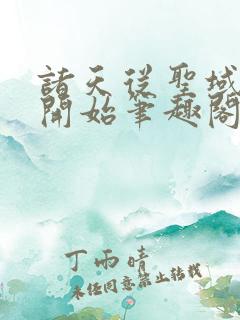 諸天從聖域
開始筆趣閣
丁雨晴
未經同意禁止轉載